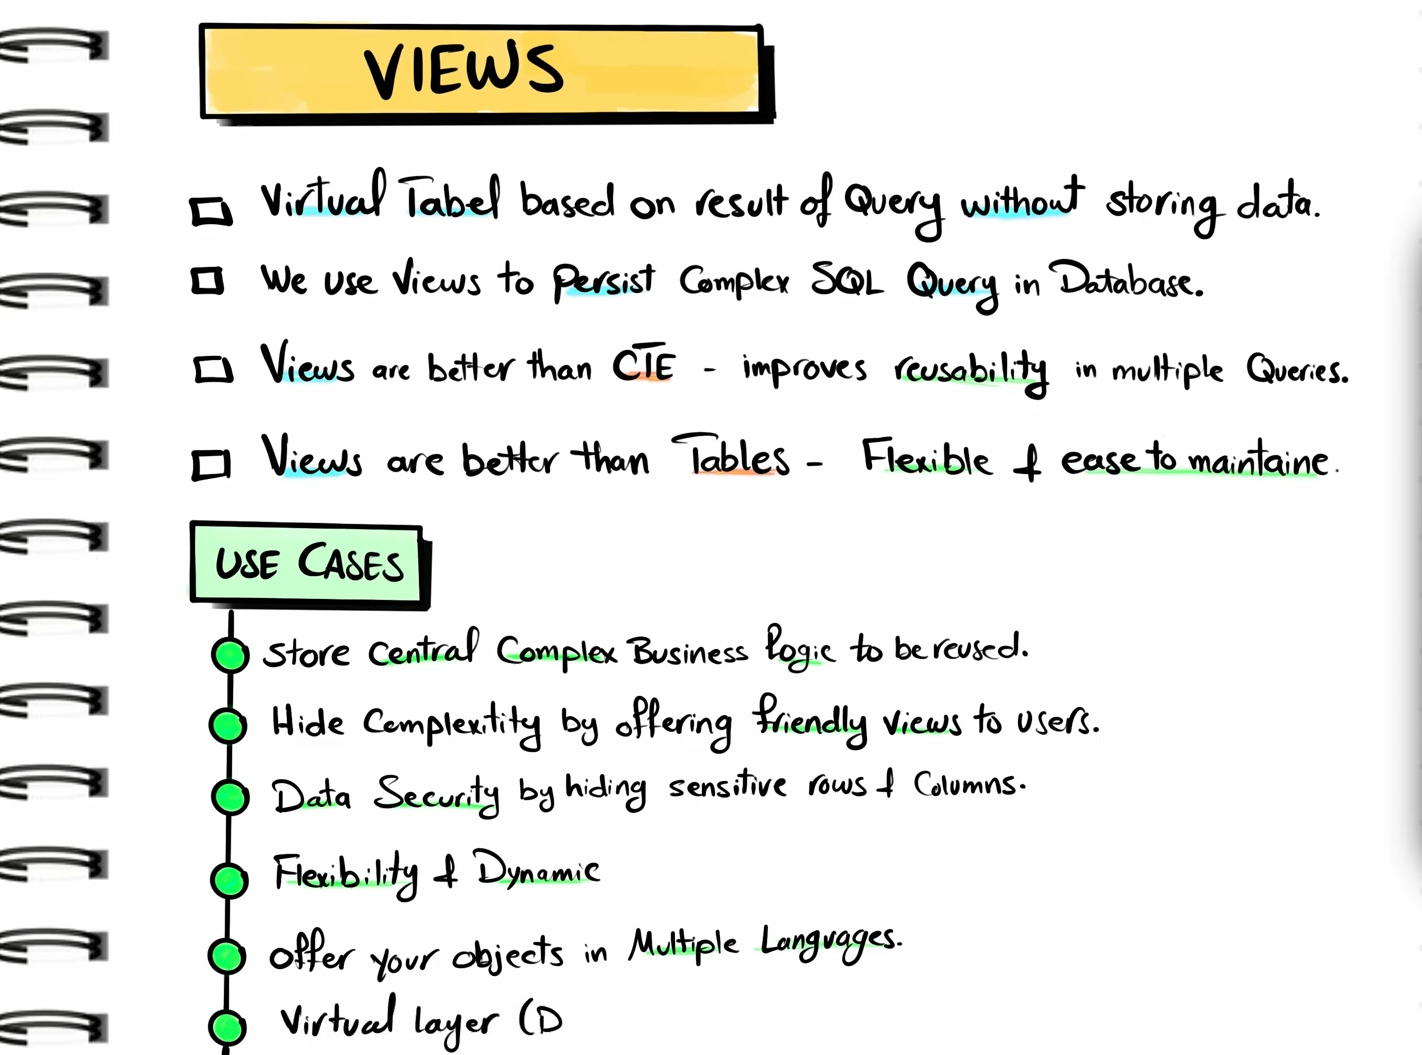 VIEWS
Virtual Tabel based on result of Query without storing data.
We use Views to Persist Complex SQL Query in Database.
Views are better than CTE - improves reusability in multiple Queries.
Views are better than Tables - Flexible & ease to maintaine.
USE CASES
Store Central Complex Business logic to be reused.
Hide Complextity by offering friendly views to users.
Data Security by hiding sensitive rows & Columns.
Flexibility & Dynamic
offer your objects in Multiple Languages.
Virtual layer (D